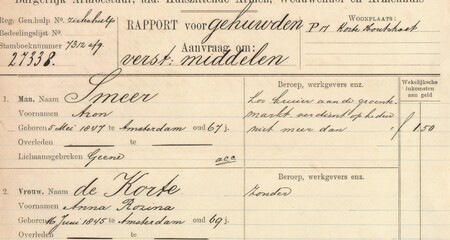 Burgerlijk Armbestuur, aan Huiszittende Armen, Weduwenhof en Armenhuis
Reg: Gen. hulp No. ziekehulp
Bedeelingslijst No.
Stamboeknummer 7312 afg
27338.
RAPPORT voor gehuwden
Aanvraag om:
verst: middelen
WOONPLAATS:
P 11 Korte Houtstraat
Beroep, werkgevers enz.
Wekelijksche inkomsten aan geld
1. Man. Naam Smeer
Voornamen Aron
Geboren 5 Mei 1847 te Amsterdam oud 67 j.
Overleden te
Lichaamsgebreken Geene acc
Los kruier aan de groente
markt verdient op heden
niet meer dan f 1.50
2. Vrouw. Naam de Korte
Voornamen Anna Rozina
Geboren 16 Juni 1845 te Amsterdam oud 69 j.
Overleden te
Beroep, werkgevers enz.
zonder